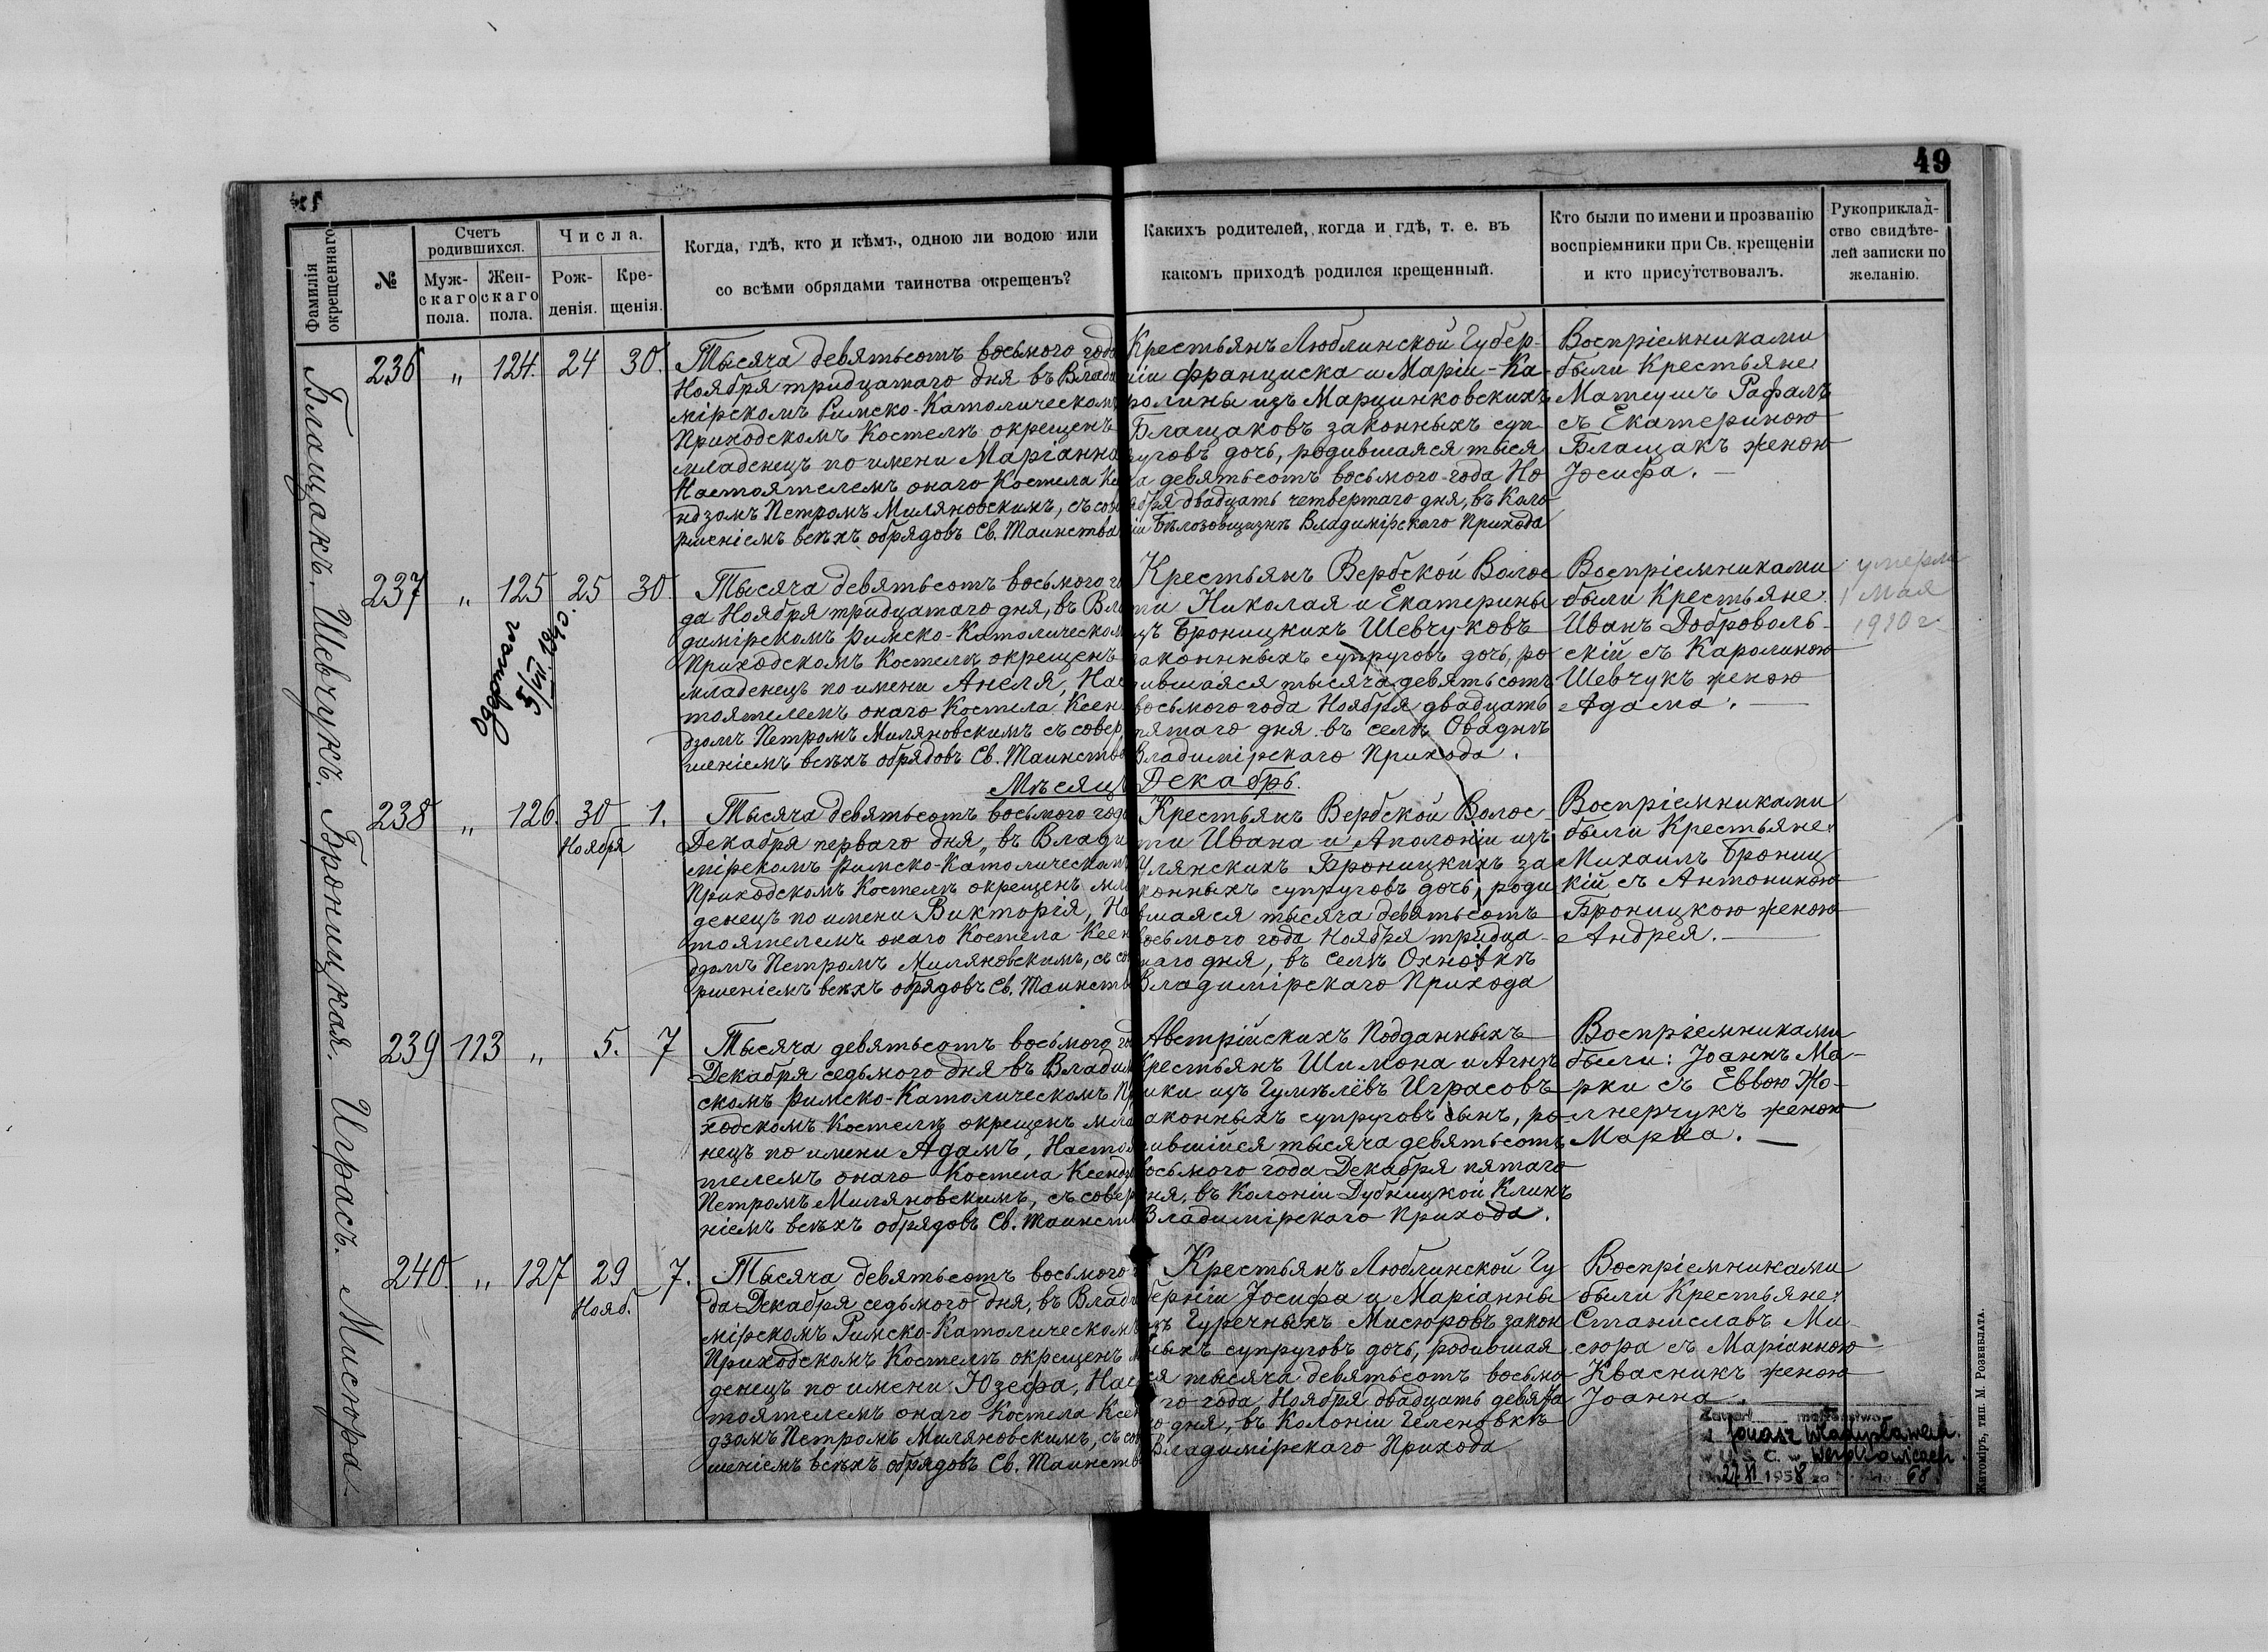 49
Фамилія окрещеннаго
№
Счетъ родившихся.
Муж-
скаго
пола.
Жен-
скаго
пола.
Числа.
Рож-
денія.
Кре-
щенія.
Когда, гдѣ, кто и кѣмъ, одною ли водою или
со всѣми обрядами таинства окрещенъ?
Какихъ родителей, когда и гдѣ, т. е. въ
какомъ приходѣ родился крещенный.
Кто были по имени и прозванію
воспріемники при Св. крещеніи
и кто присутствовалъ.
Рукоприклад-
ство свидѣте-
лей записки по
желанію.
Блащакъ.
236 " 124. 24 30.
Тысяча девятьсотъ восьмого года
Ноября тридцатаго дня въ Влади
мірскомъ Римско-Католическомъ
Приходскомъ Костелѣ окрещенъ
младенецъ по имени Маріанна
Настоятелемъ онаго Костела Кс
ндзомъ Петромъ Миляновскимъ, съ сов
ршеніемъ всѣхъ обрядовъ Св. Таинства
Крестьянъ Люблинской Губер-
ніи Франциска и Маріи-Ка-
ролины изъ Марцинковскихъ
Блащаковъ законныхъ суп-
руговъ дочь, родившаяся тыся
ча девятьсотъ восьмого года Но
ября двадцать четвертаго дня, въ Коло
ніи Бѣлозовщизнѣ Владимірскаго Прихода
Воспріемниками
были Крестьяне
Матеушъ Рафалъ
съ Екатериною
Блащакъ женою
Іосифа. —
Шевчукъ.
237 " 125 25 30.
5/VII 1940.
Тысяча девятьсотъ восьмого го
да Ноября тридцатаго дня, въ Вла
димірскомъ Римско-Католическом
Приходскомъ Костелѣ окрещенъ
младенецъ по имени Анеля, Нас
тоятелемъ онаго Костела Ксен
дзомъ Петромъ Миляновскимъ съ совер
шеніемъ всѣхъ обрядовъ Св. Таинства
Крестьянъ Вербской Волос
ти Николая и Екатерины
изъ Броницкихъ Шевчуковъ
законныхъ супруговъ дочь, ро
дившаяся тысяча девятьсотъ
восьмого года Ноября двадцать
пятаго дня въ селѣ Оваднѣ
Владимірскаго Прихода.
Воспріемниками
были Крестьяне
Иванъ Доброволь-
скій съ Каролиною
Шевчукъ женою
Адама. —
умерла
1 Мая
1910 г.
Мѣсяцъ Декабрь.
Броницкая.
238 " 126. 30 1.
Ноября
Тысяча девятьсотъ восьмого года
Декабря перваго дня, въ Влади
мірскомъ Римско-Католическомъ
Приходскомъ Костелѣ окрещенъ мла
денецъ по имени Викторія, На
тоятелемъ онаго Костела Ксен
дзомъ Петромъ Миляновскимъ, съ со
ршеніемъ всѣхъ обрядовъ Св. Таинств
Крестьянъ Вербской Волос
ти Ивана и Аполоніи изъ
Улянскихъ Броницкихъ за
конныхъ супруговъ дочь, роди
вшаяся тысяча девятьсотъ
восьмого года Ноября тридца-
таго дня, въ селѣ Охновкѣ
Владимірскаго Прихода
Воспріемниками
были Крестьяне:
Михаилъ Брониц
кій съ Антониною
Броницкою женою
Андрея. —
Играсъ.
239 113 " 5. 7
Тысяча девятьсотъ восьмого го
Декабря седьмого дня въ Владим
скомъ Римско-Католическомъ Пр
ходскомъ Костелѣ окрещенъ мла
нецъ по имени Адамъ, Настоя
телемъ онаго Костела Ксендз
Петромъ Миляновскимъ, съ совер
ніемъ всѣхъ обрядовъ Св. Таинств
Австрійскихъ Подданныхъ
Крестьянъ Шимона и Агнѣ
шки изъ Гумѣлёвъ Играсовъ
законныхъ супруговъ сынъ, ро-
дившійся тысяча девятьсотъ
восьмого года Декабря пятаго
дня, въ Колоніи Дубницкой Клинъ
Владимірскаго Прихода.
Воспріемниками
были: Іоаннъ Ма-
рки съ Еввою Жо-
лнерчукъ женою
Марка. —
Мисюра.
240. " 127 29 7.
Нояб.
Тысяча девятьсотъ восьмого г
да Декабря седьмого дня, въ Влади
мірскомъ Римско-Католическомъ
Приходскомъ Костелѣ окрещенъ м
денецъ по имени Юзефа, Нас
тоятелемъ онаго Костела Ксен
дзомъ Петромъ Миляновскимъ, съ сов
шеніемъ всѣхъ обрядовъ Св. Таинств
Крестьянъ Люблинской Гу
берніи Іосифа и Маріанны
изъ Гуречныхъ Мисюровъ закон
ныхъ супруговъ дочь, родившая
ся тысяча девятьсотъ восьмо
го года, Ноября двадцать девята
го дня, въ Колоніи Геленовкѣ
Владимірскаго Прихода
Воспріемниками
были Крестьяне:
Станиславъ Ми-
сюра съ Маріанною
Квасникъ женою
Іоанна.
Zawarł małżeństwo
z Jonasz Władysławem.
w U. S. C. w Werbkowicach.
27 XI 1958 za Nr 68.
Житоміръ, тип. М. Розенблата.